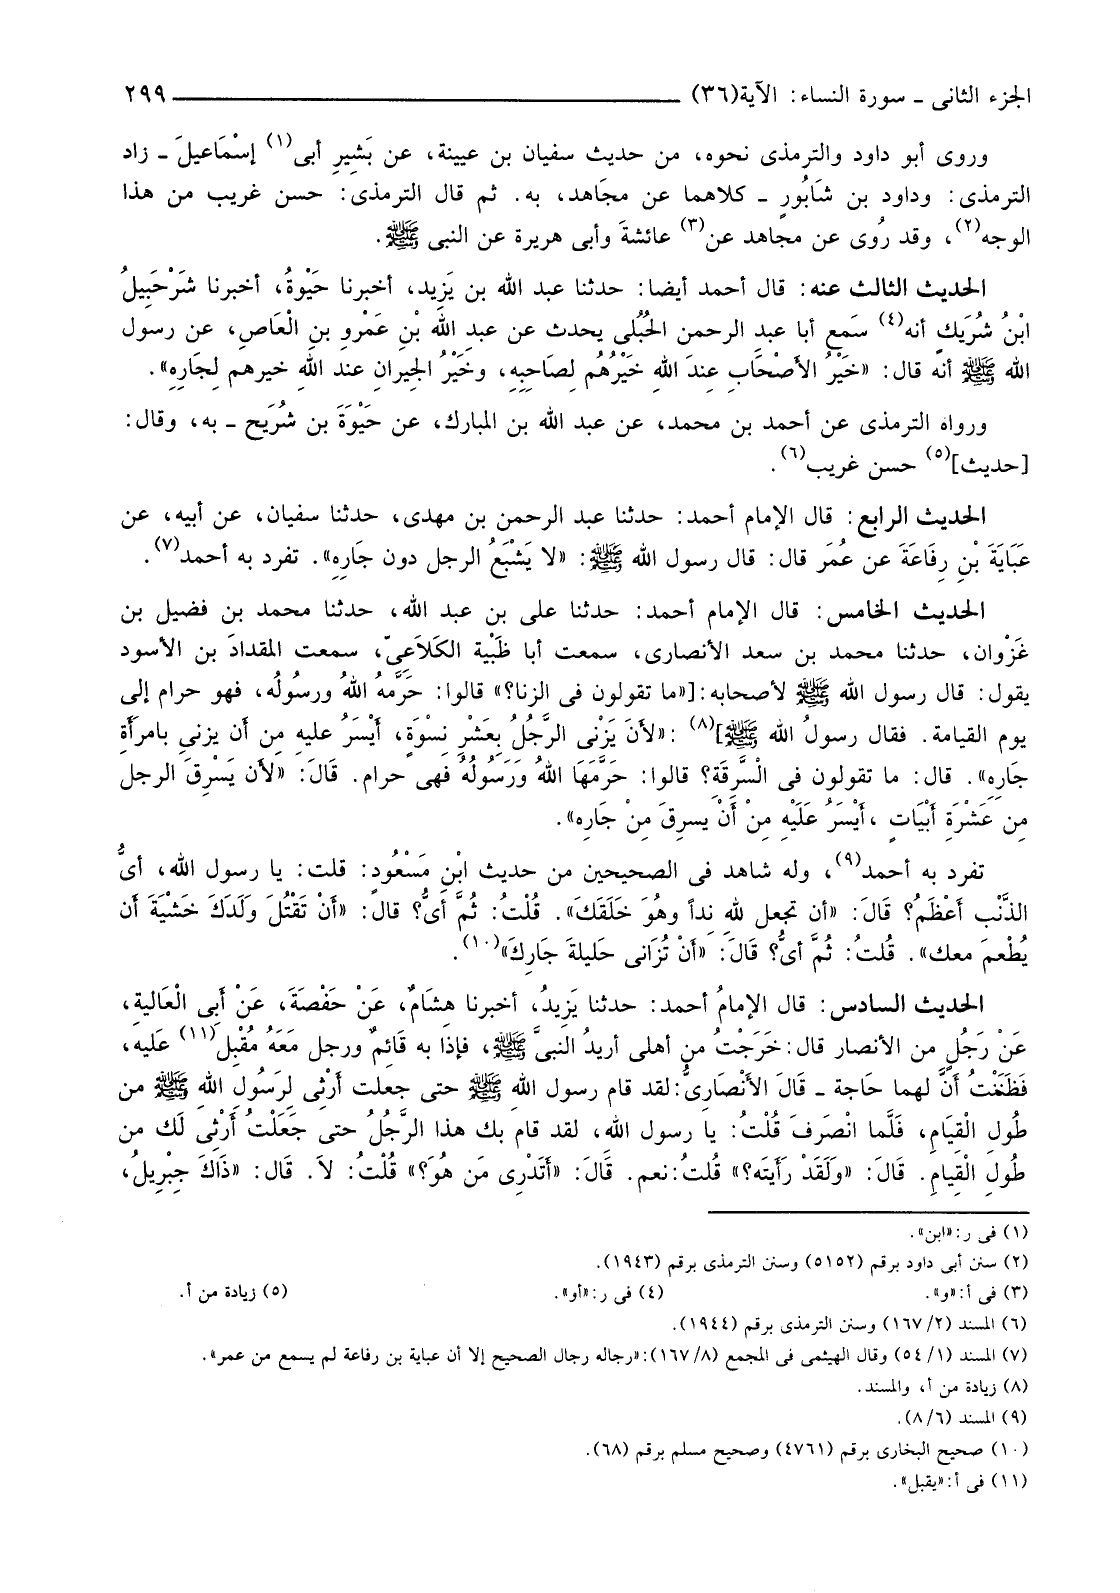 الجزء الثانى ـ سورة النساء: الآية(٣٦) ٢٩٩
وروى أبو داود والترمذى نحوه، من حديث سفيان بن عيينة، عن بَشِيرِ أبى(١) إسْمَاعيلَ ـ زاد
الترمذى: وداود بن شَابُورٍ ـ كلاهما عن مجاهد، به. ثم قال الترمذى: حسن غريب من هذا
الوجه(٢)، وقد رُوى عن مجاهد عن(٣) عائشةَ وأبى هريرة عن النبى ﷺ.
الحديث الثالث عنه: قال أحمد أيضا: حدثنا عبد الله بن يَزِيد، أخبرنا حَيْوةُ، أخبرنا شَرْحَبِيلُ
ابْنُ شُرَيكٍ أنه(٤) سَمع أبا عبد الرحمن الحُبُلى يحدث عن عبد الله بْنِ عَمْرو بنِ الْعَاصِ، عن رسول
الله ﷺ أنه قال: «خَيْرُ الأَصْحَابِ عِندَ اللهِ خَيْرُهُم لِصَاحِبِهِ، وخَيْرُ الجِيرانِ عند اللهِ خيرهم لِجَارِهِ».
ورواه الترمذى عن أحمد بن محمد، عن عبد الله بن المبارك، عن حَيْوَةَ بن شُرَيح ـ به، وقال:
[حديث](٥) حسن غريب(٦).
الحديث الرابع: قال الإمام أحمد: حدثنا عبد الرحمن بن مهدى، حدثنا سفيان، عن أبيه، عن
عَبَايَةَ بْنِ رِفَاعَةَ عن عُمَر قال: قال رسول الله ﷺ: «لا يَشْبَعُ الرجل دون جَارِهِ». تفرد به أحمد(٧).
الحديث الخامس: قال الإمام أحمد: حدثنا على بن عبد الله، حدثنا محمد بن فضيل بن
غَزْوان، حدثنا محمد بن سعد الأنصارى، سمعت أبا ظَبْية الكَلاَعِىّ، سمعت المقدادَ بن الأسود
يقول: قال رسول الله ﷺ لأصحابه:[«ما تقولون فى الزنا؟» قالوا: حَرَّمهُ اللهُ ورسُولُه، فهو حرام إلى
يوم القيامة. فقال رسولُ الله ﷺ](٨) :«لأنَ يَزْنى الرَّجُلُ بِعَشْرِ نِسْوَةٍ، أيْسَرُ عليه مِن أن يزنى بامرَأةِ
جَارِهِ». قال: ما تقولون فى الْسَّرقَةِ؟ قالوا: حَرَّمَهَا اللهُ وَرَسُولُهُ فهى حرام. قَالَ: «لأن يَسْرِقَ الرجل
مِن عَشْرَةِ أَبْيَاتٍ ،أيْسَرُ عَلَيْهِ مِنْ أَنْ يسرِقَ مِنْ جَارِه».
تفرد به أحمد(٩)، وله شاهد فى الصحيحين من حديث ابْنِ مَسْعُودٍ: قلت: يا رسول الله، أىُّ
الذَّنْب أعْظَمُ؟ قَالَ: «أن تجعل للهِ نِداً وهُوَ خَلَقَكَ». قُلْتُ: ثُمَّ أىُّ؟ قال: «أنْ تَقْتُلَ وَلَدَكَ خَشْيَةَ أن
يُطْعمَ معك». قُلتُ: ثُمَّ أىُّ؟ قَالَ: «أنْ تُزَانى حَلِيلةَ جَارِكَ»(١٠).
الحديث السادس: قال الإمامُ أحمد: حدثنا يَزِيدُ، أخبرنا هِشَامٌ، عَنْ حَفْصَةَ، عَنْ أبِى الْعَالِيةِ،
عَنْ رَجُلٍ من الأنصار قال:خَرَجْتُ مِن أهلى أريدُ النبىَّ ﷺ، فإذا به قَائِمٌ ورجل مَعَهُ مُقْبِل(١١) عليه،
فَظَنَنْتُ أنَّ لهما حَاجة ـ قَالَ الأَنْصَارِىُّ:لقد قام رسول الله ﷺ حتى جعلت أرْثِى لِرَسُولِ اللهِ ﷺ من
طُولِ القِيَامِ، فَلَّما انْصَرفَ قُلْتُ: يا رسول الله، لقد قام بك هذا الرَّجُلُ حتى جَعَلْتُ أَرْثِى لَك من
طُولِ الْقِيَامِ. قَالَ: «وَلَقَدْ رَأيَته؟» قُلتُ:نعم. قَالَ: «أتَدْرِى مَن هُوَ؟» قُلْتُ: لاَ. قَال: «ذَاكَ جِبْرِيلُ،
(١) فى ر:«ابن».
(٢) سنن أبى داود برقم (٥١٥٢) وسنن الترمذى برقم (١٩٤٣).
(٣) فى أ:«و». (٤) فى ر:«أو». (٥) زيادة من أ.
(٦) المسند (٢/ ١٦٧) وسنن الترمذى برقم (١٩٤٤).
(٧) المسند (١/ ٥٤) وقال الهيثمى فى المجمع (٨/ ١٦٧):«رجاله رجال الصحيح إلا أن عباية بن رفاعة لم يسمع من عمر».
(٨) زيادة من أ، والمسند.
(٩) المسند (٦/ ٨).
(١٠) صحيح البخارى برقم (٤٧٦١) وصحيح مسلم برقم (٦٨).
(١١) فى أ:«يقبل».